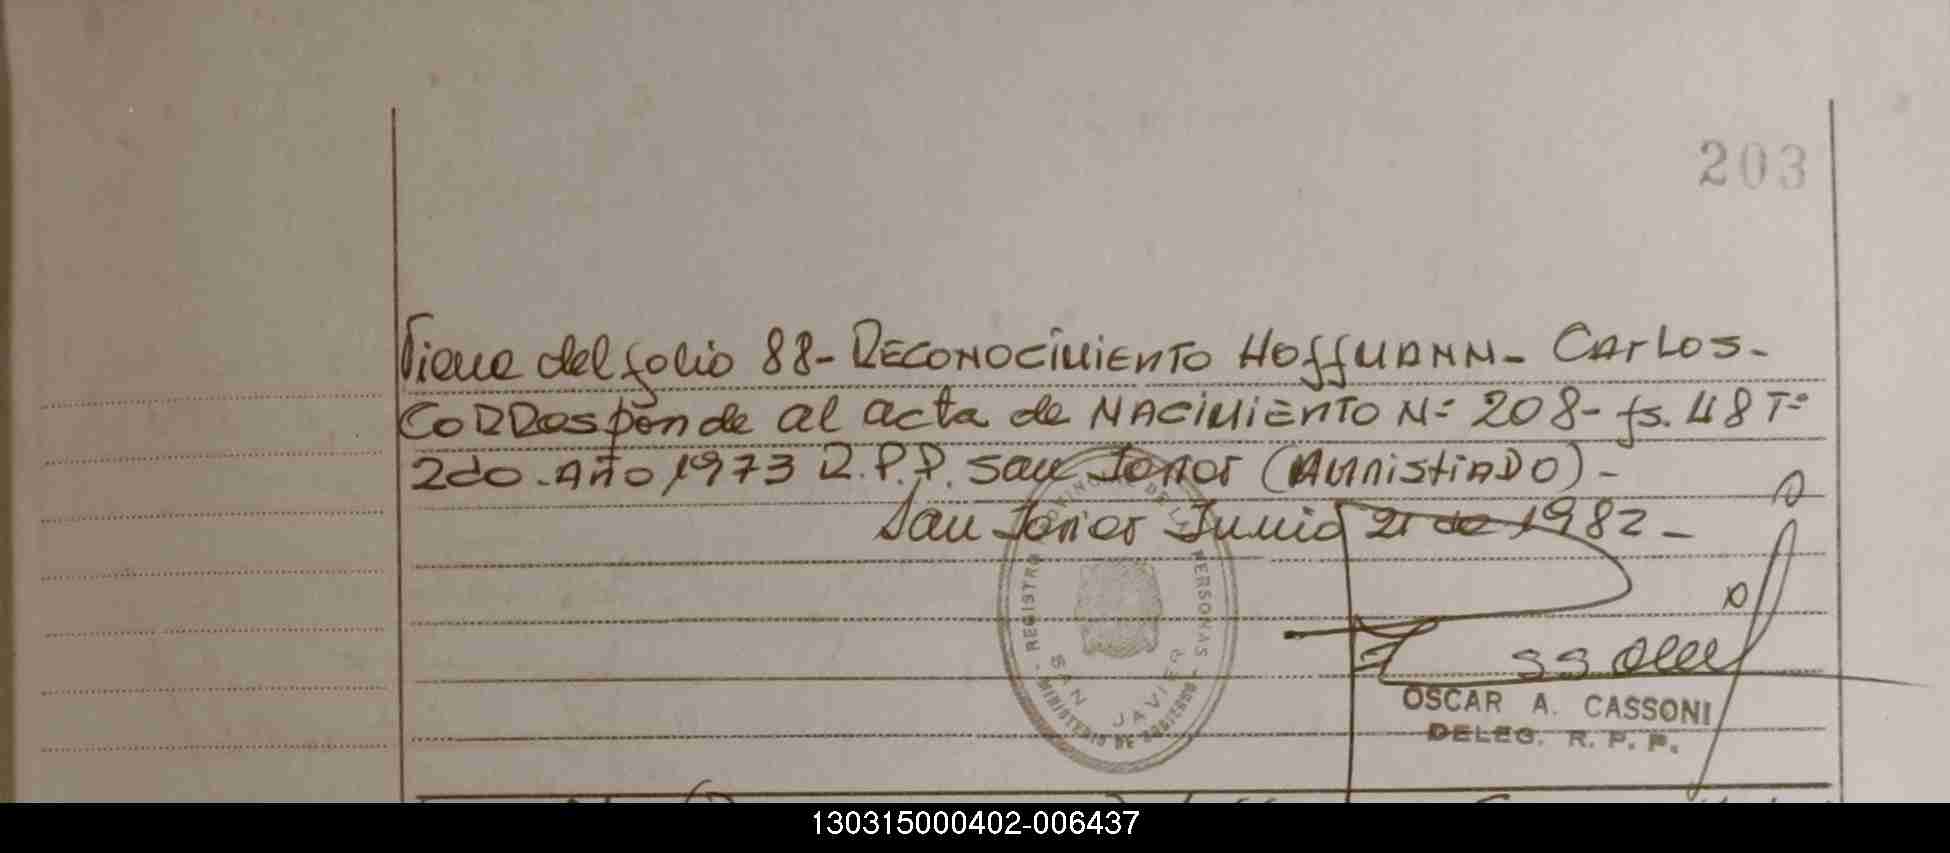 203
Viene del folio 88- RECONOCIMIENTO HOFFMANN- CARLOS-
CORRESPONDE al acta de NACIMIENTO N= 208- fs. 48 T=
2do. AÑO 1973 R.P.P. San Javier (AMNISTIADO)-
San Javier Junio 21 de 1982-
REGISTRO PROVINCIAL DE LAS PERSONAS
MINISTERIO DE GOBIERNO
SAN JAVIER
OSCAR A. CASSONI
DELEG. R. P. P.
130315000402-006437